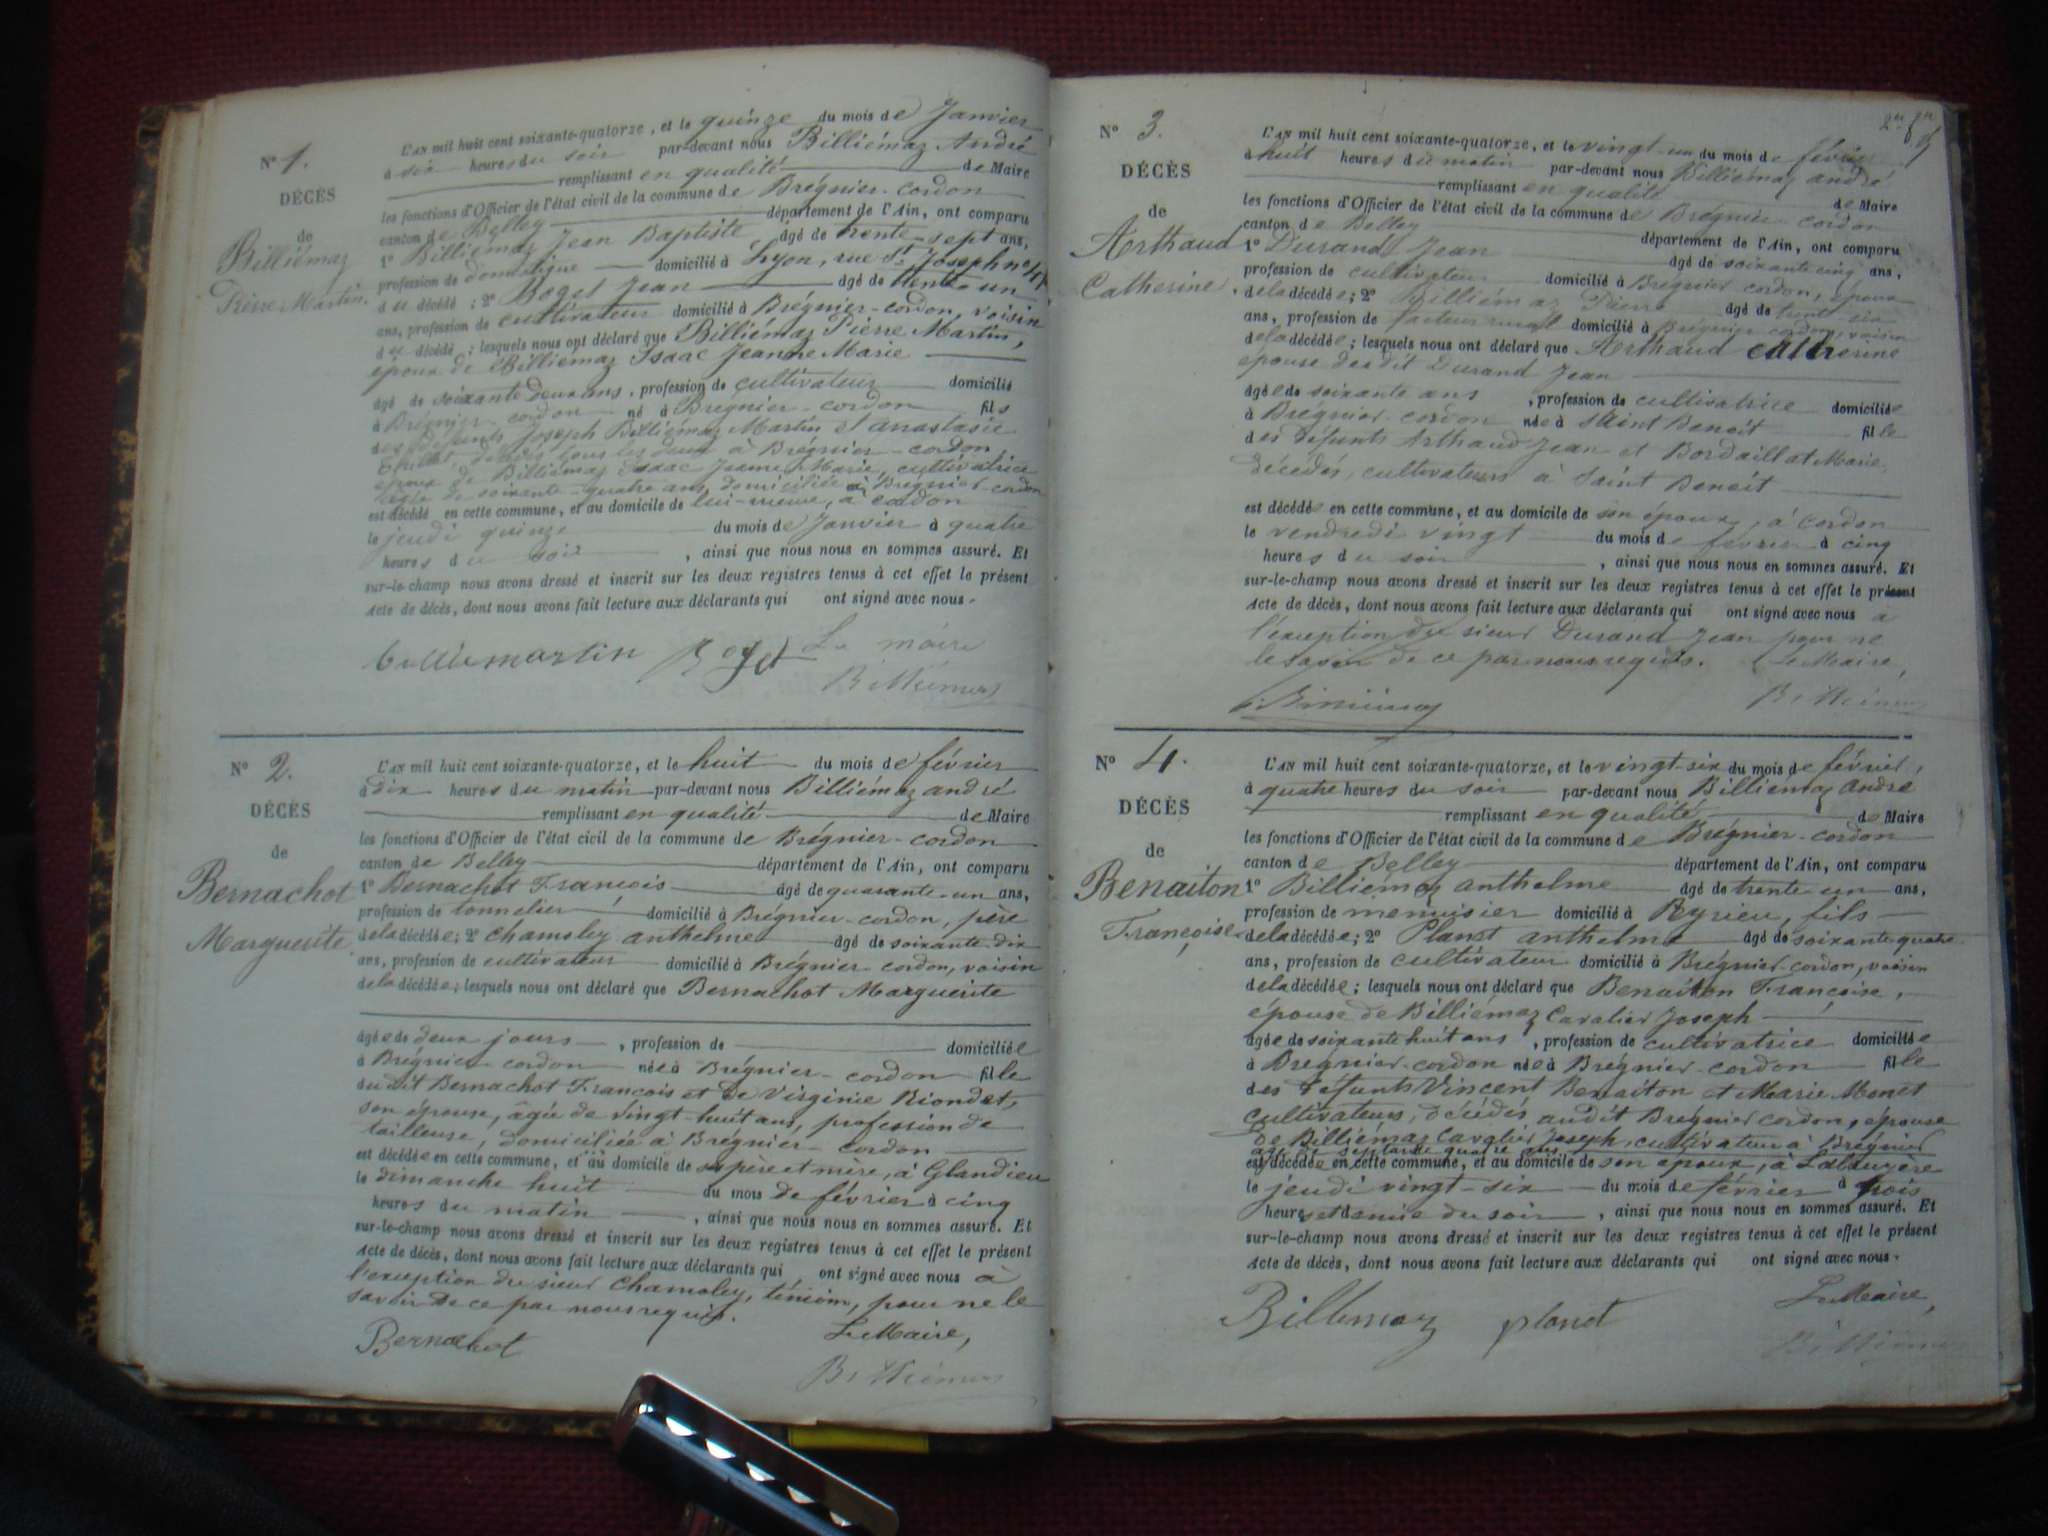 N° 1.
DÉCÈS
de
Billiémaz
Pierre Martin.
L'AN mil huit cent soixante-quatorze, et le quinze du mois de Janvier
à six heures du soir par-devant nous Billiémaz André
remplissant en qualité de Maire
les fonctions d'Officier de l'état civil de la commune de Brégnier-cordon
canton de Belley département de l'Ain, ont comparu
1° Billiémaz Jean Baptiste âgé de trente-sept ans,
profession de domestique domicilié à Lyon, rue St Joseph n°
du décédé ; 2° Boget Jean âgé de trente-un
ans, profession de cultivateur domicilié à Brégnier-cordon, voisin
du décédé ; lesquels nous ont déclaré que Billiémaz Pierre Martin,
époux de Billiémaz Isaac Jeanne Marie
âgé de soixante deux ans, profession de cultivateur domicilié
à Brégnier-cordon né à Brégnier-cordon fils
des défunts Joseph Billiémaz Martin et anastasie
décédés tous les deux à Brégnier-cordon,
époux de Billiémaz Isaac Jeanne Marie, cultivatrice
âgée de soixante-quatre ans, domiciliée à Brégnier-cordon
est décédé en cette commune, et au domicile de lui-même, à cordon
le jeudi quinze du mois de Janvier à quatre
heures du soir , ainsi que nous nous en sommes assuré. Et
sur-le-champ nous avons dressé et inscrit sur les deux registres tenus à cet effet le présent
Acte de décès, dont nous avons fait lecture aux déclarants qui ont signé avec nous.
Le maire
Billiémaz
N° 2.
DÉCÈS
de
Bernachot
Marguerite
L'AN mil huit cent soixante-quatorze, et le huit du mois de février
à dix heures du matin par-devant nous Billiémaz andré
remplissant en qualité de Maire
les fonctions d'Officier de l'état civil de la commune de Brégnier-cordon
canton de Belley département de l'Ain, ont comparu
1° Bernachot François âgé de quarante-un ans,
profession de tonnelier domicilié à Brégnier-cordon, père
de la décédée ; 2° Chamoley anthelme âgé de soixante-dix
ans, profession de cultivateur domicilié à Brégnier-cordon, voisin
de la décédée ; lesquels nous ont déclaré que Bernachot Marguerite
âgée de deux jours , profession de domiciliée
à Brégnier-cordon née à Brégnier-cordon fille
du dit Bernachot François et de Virginie Riondet,
son épouse, âgée de vingt-huit ans, profession de
tailleuse, domiciliée à Brégnier-cordon
est décédée en cette commune, et au domicile de sa père et mère, à Glandieu
le dimanche huit du mois de février à cinq
heures du matin , ainsi que nous nous en sommes assuré. Et
sur-le-champ nous avons dressé et inscrit sur les deux registres tenus à cet effet le présent
Acte de décès, dont nous avons fait lecture aux déclarants qui ont signé avec nous à
l'exception du sieur Chamoley, témoin, pour ne le
savoir de ce par nous requis.
Bernachot Le Maire,
Billiémaz
N° 3.
DÉCÈS
de
Arthaud
Catherine.
L'AN mil huit cent soixante-quatorze, et le vingt-un du mois de février
à huit heures du matin par-devant nous Billiémaz andré
remplissant en qualité de Maire
les fonctions d'Officier de l'état civil de la commune de Brégnier-cordon
canton de Belley département de l'Ain, ont comparu
1° Durand Jean âgé de soixante cinq ans,
profession de cultivateur domicilié à Brégnier cordon, époux
de la décédée ; 2° Billiémaz Pierre âgé de trente six
ans, profession de facteur rural domicilié à Brégnier-cordon, voisin
de la décédée ; lesquels nous ont déclaré que Arthaud Catherine
épouse du dit Durand Jean
âgée de soixante ans , profession de cultivatrice domiciliée
à Brégnier-cordon née à Saint Benoit fille
des défunts Arthaud Jean et Bordaillat Marie,
décédés, cultivateurs à Saint Benoit
est décédée en cette commune, et au domicile de son époux, à cordon
le vendredi vingt du mois de février à cinq
heures du soir , ainsi que nous nous en sommes assuré. Et
sur-le-champ nous avons dressé et inscrit sur les deux registres tenus à cet effet le présent
Acte de décès, dont nous avons fait lecture aux déclarants qui ont signé avec nous à
l'exception du sieur Durand Jean pour ne
le savoir de ce par nous requis. Le Maire,
Billiémaz
N° 4.
DÉCÈS
de
Benaiton
Françoise
L'AN mil huit cent soixante-quatorze, et le vingt-six du mois de février,
à quatre heures du soir par-devant nous Billiémaz André
remplissant en qualité de Maire
les fonctions d'Officier de l'état civil de la commune de Brégnier-cordon
canton de Belley département de l'Ain, ont comparu
1° Billiémaz anthelme âgé de trente-un ans,
profession de menuisier domicilié à Peyrieu, fils
de la décédée ; 2° Planet anthelme âgé de soixante quatre
ans, profession de cultivateur domicilié à Brégnier-cordon, voisin
de la décédée ; lesquels nous ont déclaré que Benaiton Françoise,
épouse de Billiémaz Cavalier Joseph
âgée de soixante huit ans , profession de cultivatrice domiciliée
à Brégnier-cordon née à Brégnier-cordon fille
des défunts Vincent Benaiton et Marie Monet
cultivateurs, décédés au dit Brégnier cordon, épouse
de Billiémaz Cavalier Joseph, cultivateur à Brégnier
âgé de septante quatre ans
est décédée en cette commune, et au domicile de son époux, à
le jeudi vingt-six du mois de février à trois
heures et demie du soir , ainsi que nous nous en sommes assuré. Et
sur-le-champ nous avons dressé et inscrit sur les deux registres tenus à cet effet le présent
Acte de décès, dont nous avons fait lecture aux déclarants qui ont signé avec nous.
Billiemaz planet Le Maire,
Billiémaz